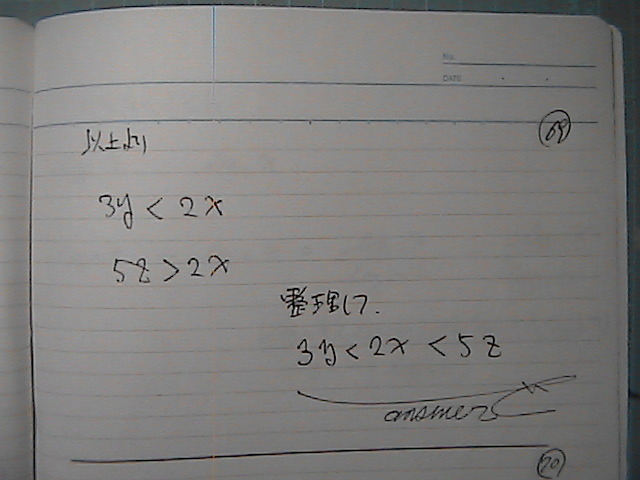 No.
DATE
69
以上より
3y < 2x
5z > 2x
整理して.
3y < 2x < 5z
answer
70